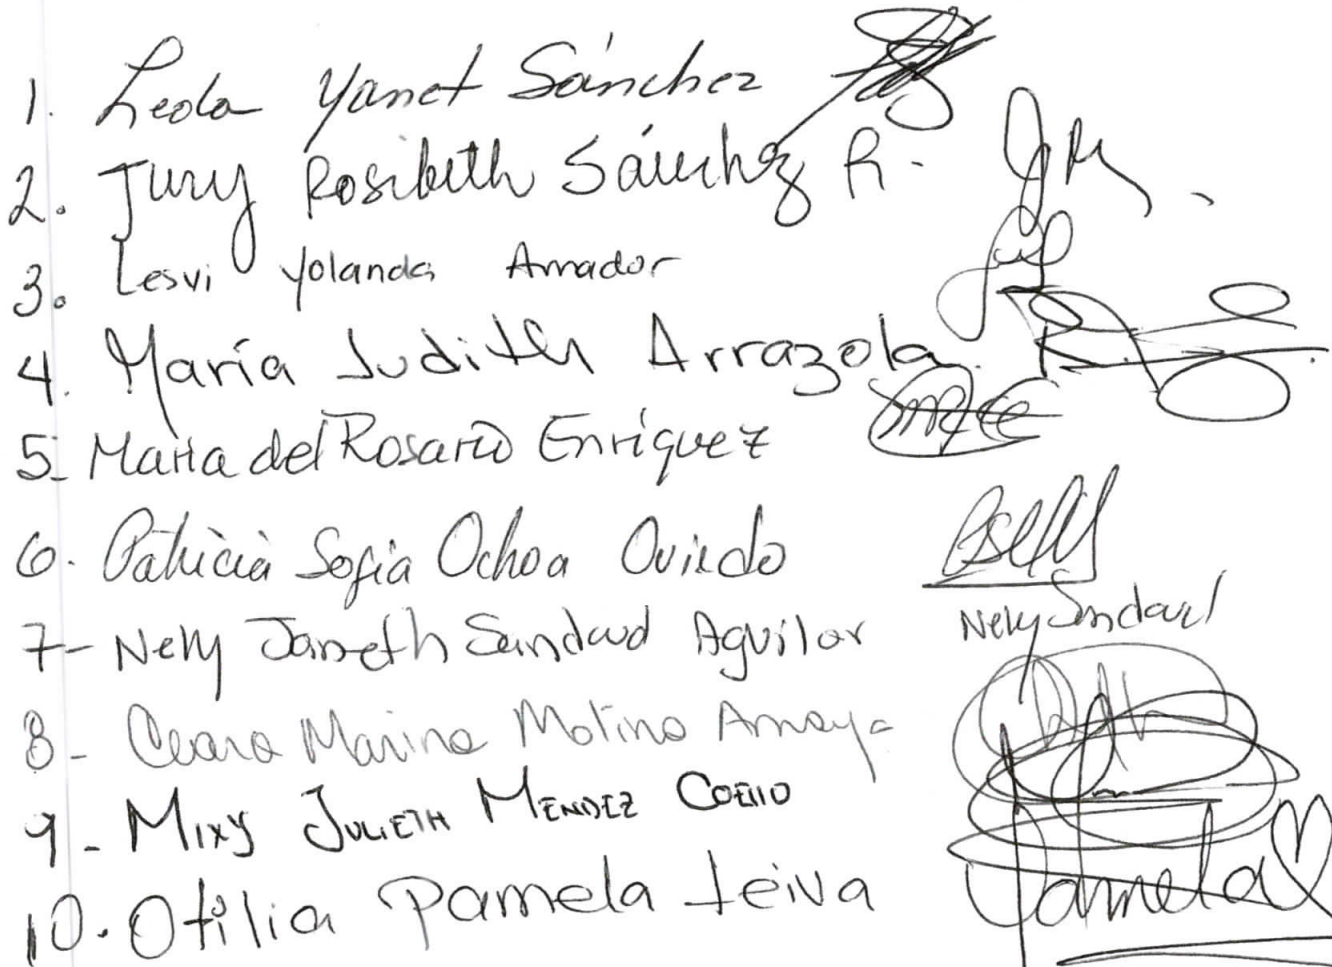 1. Leda Yanet Sánchez
2. Jury Rosibeth Sánchez R.
3. Lesvi Yolanda Amador
4. María Judith Arrazola
5- Maria del Rosario Enríquez
6. Patricia Sofia Ochoa Oviedo
7- Nelly Janeth Sandoval Aguilar Nely Sandoval
8- Marina Molina Amaya
9- Mixy Julieth Mendez Coello
10. Otilia Pamela Leiva Pamela